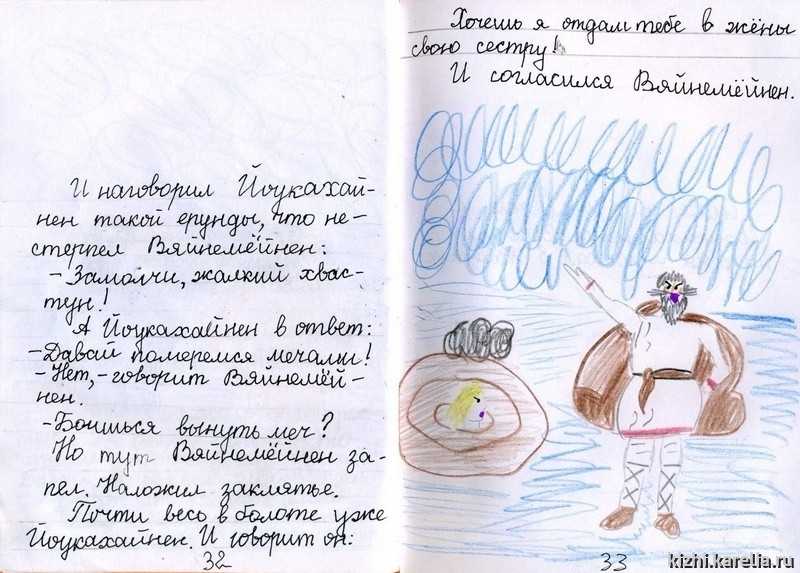 И наговорил Йоукахай-
нен такой ерунды, что не-
стерпел Вяйнемёйнен:
- Замолчи, жалкий хвас-
тун!
А Йоукахайнен в ответ:
- Давай померемся мечами!
- Нет, - говорит Вяйнемёй-
нен.
- Боишься вынуть меч?
Но тут Вяйнемёйнен за-
пел. Наложил заклятье.
Почти весь в болоте уже
Йоукахайнен. И говорит он:
32
Хочешь я отдам тебе в жёны
свою сестру!
И согласился Вяйнемёйнен.
33
kizhi.karelia.ru